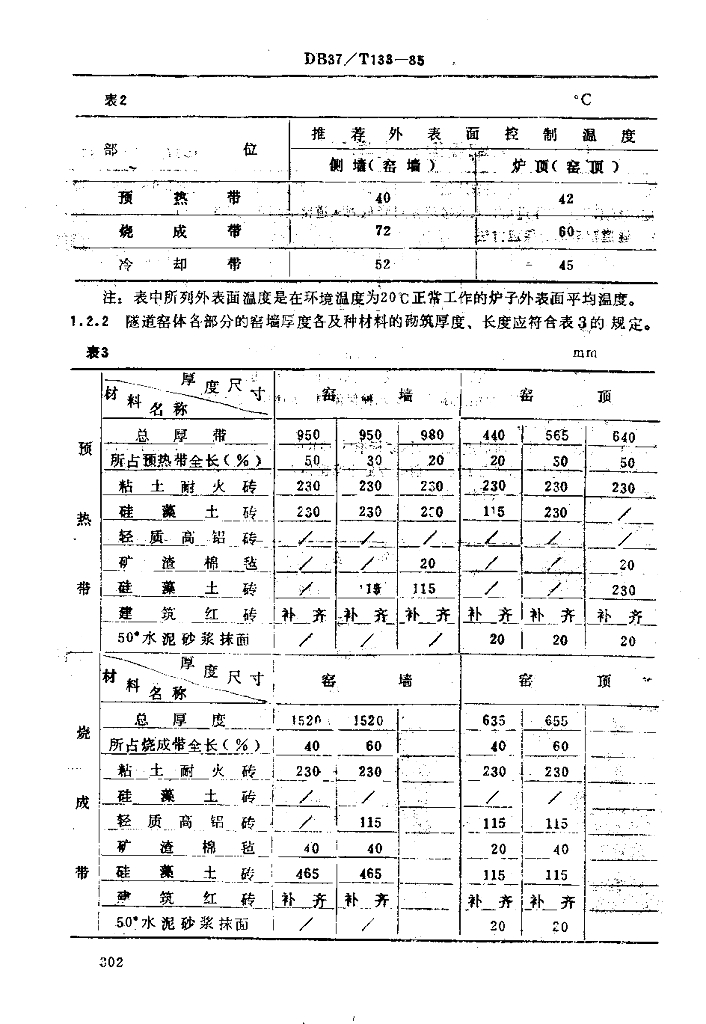 DB37/T133—85
表2 °C
部 位 推 荐 外 表 面 控 制 温 度
侧 墙(窑 墙) 炉 顶(窑 顶)
预 热 带 40 42
烧 成 带 72 60
冷 却 带 52 45
注：表中所列外表面温度是在环境温度为20℃正常工作的炉子外表面平均温度。
1.2.2 隧道窑体各部分的窑墙厚度各及种材料的砌筑厚度、长度应符合表3的 规定。
表3 mm
预 热 带
材 料 名 称 厚 度 尺 寸 窑 墙 窑 顶
总 厚 带 950 950 980 440 565 640
所占预热带全长(%) 50 30 20 20 30 50
粘 土 耐 火 砖 230 230 230 230 230 230
硅 藻 土 砖 230 230 230 115 230 /
轻 质 高 铝 砖 / / / / / /
矿 渣 棉 毡 / / 20 / / 20
硅 藻 土 砖 / 115 115 / / 230
建 筑 红 砖 补 齐 补 齐 补 齐 补 齐 补 齐 补 齐
50*水 泥 砂 浆 抹 面 / / / 20 20 20
烧 成 带
材 料 名 称 厚 度 尺 寸 窑 墙 窑 顶
总 厚 度 1520 1520 635 655
所占烧成带全长(%) 40 60 40 60
粘 土 耐 火 砖 230 230 230 230
硅 藻 土 砖 / / / /
轻 质 高 铝 砖 / 115 115 115
矿 渣 棉 毡 40 40 20 40
硅 藻 土 砖 465 465 115 115
建 筑 红 砖 补 齐 补 齐 补 齐 补 齐
50*水 泥 砂 浆 抹 面 / / 20 20
302